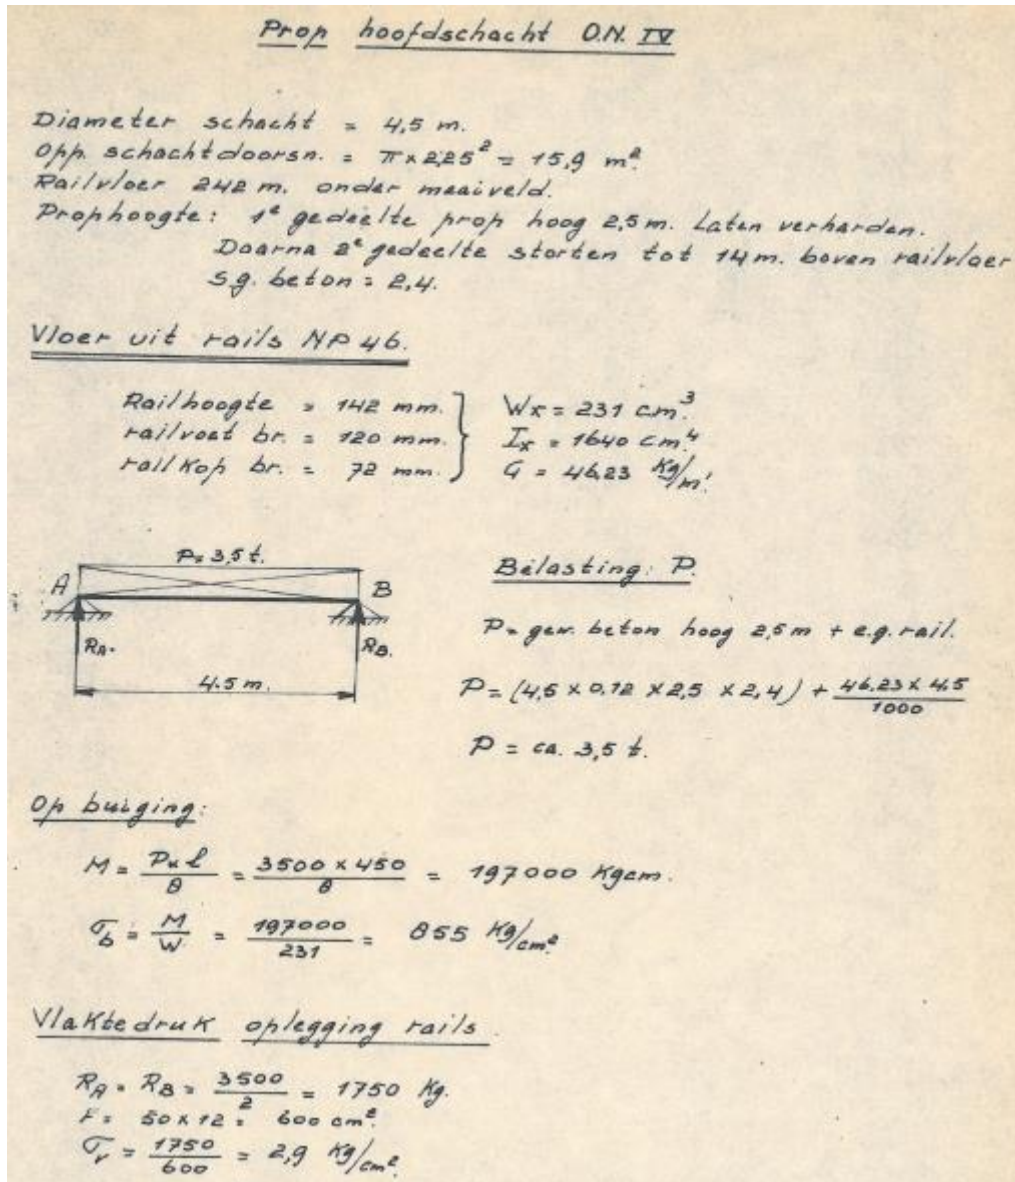 Prop hoofdschacht O.N. IV
Diameter schacht = 4,5 m.
Opp. schachtdoorsn. = π x 2,25² = 15,9 m².
Railvloer 242 m. onder maaiveld.
Prophoogte: 1e gedeelte prop hoog 2,5 m. Laten verharden.
Daarna 2e gedeelte storten tot 14 m. boven railvloer
s.g. beton = 2,4.
Vloer uit rails NP 46.
Railhoogte = 142 mm. } Wx = 231 cm³.
railvoet br. = 120 mm. } Ix = 1640 cm⁴
railkop br. = 72 mm. } G = 46,23 Kg/m'.
P = 3,5 t.
A B
RA. RB.
4.5 m.
Belasting: P.
P = gew. beton hoog 2,5 m + e.g. rail.
P = (4,5 x 0,12 x 2,5 x 2,4) + 46,23 x 4,5 / 1000
P = ca. 3,5 t.
Op buiging:
M = P x l / 8 = 3500 x 450 / 8 = 197000 Kgcm.
σb = M / W = 197000 / 231 = 855 Kg/cm².
Vlaktedruk oplegging rails.
RA = RB = 3500 / 2 = 1750 Kg.
F = 50 x 12 = 600 cm².
σv = 1750 / 600 = 2,9 Kg/cm².